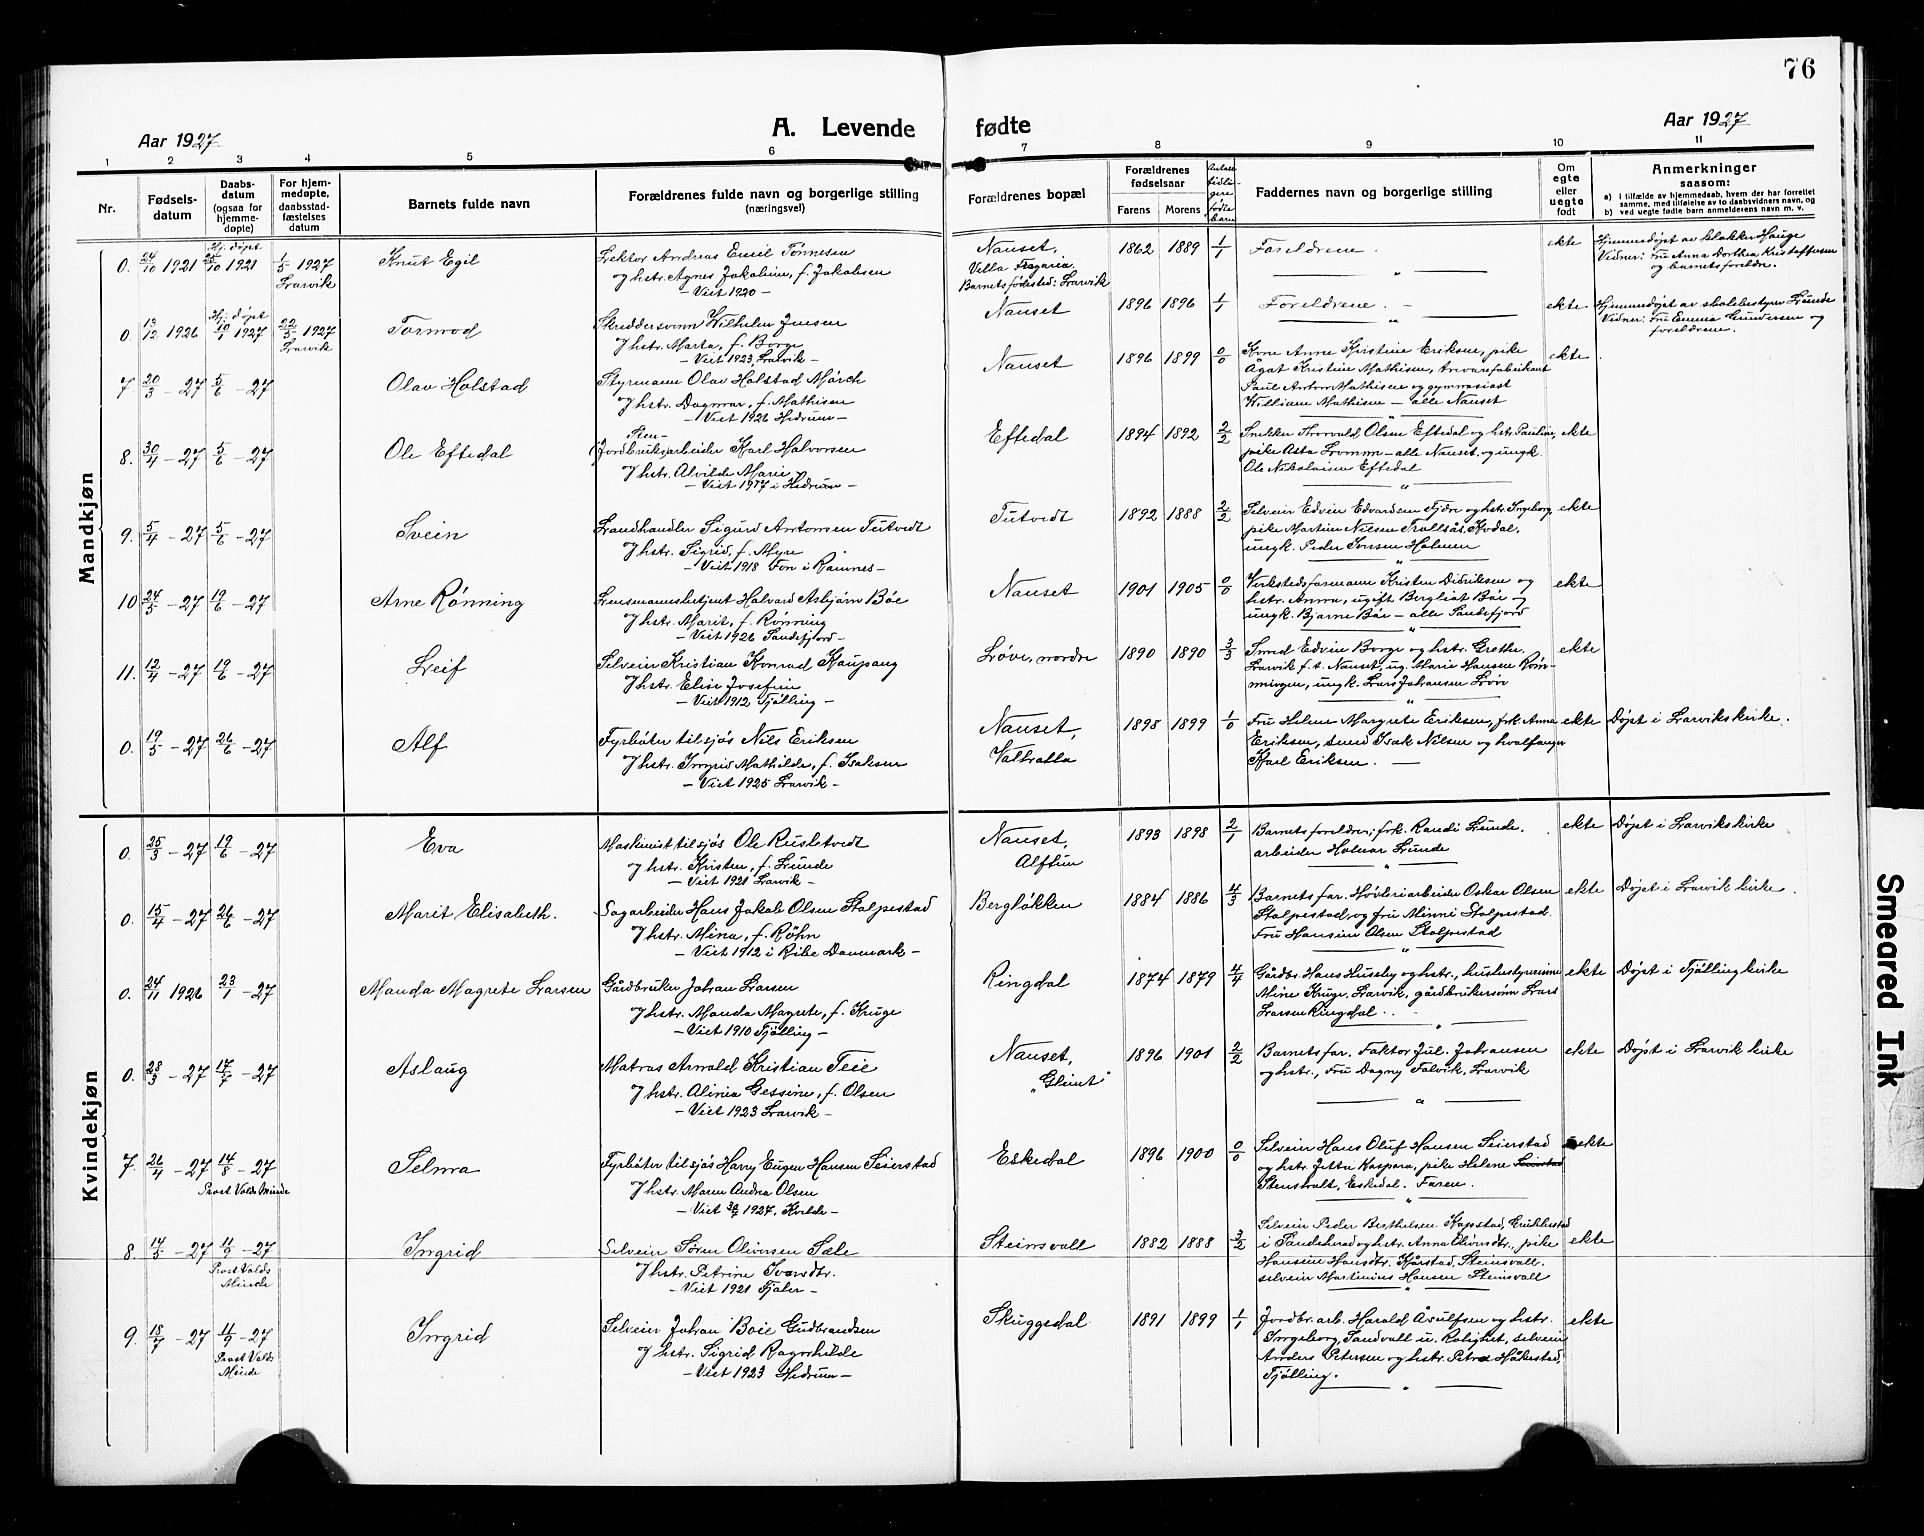 76
Aar 1927
A. Levende fødte
Aar 1927
1 2 3 4 5 6 7 8 9 10 11
Nr.
Fødsels-
datum
Daabs-
datum
(ogsaa for
hjemme-
døpte)
For hjem-
medøpte,
daabsstad-
fæstelses
datum
Barnets fulde navn
Forældrenes fulde navn og borgerlige stilling
(næringsvei)
Forældrenes bopæl
Forældrenes
fødselsaar
Farens Morens
Antal
tidli-
gere
fødte
barn
Faddernes navn og borgerlige stilling
Om
egte
eller
uegte
født
Anmerkninger
saasom:
a) i tilfælde av hjemmedaab, hvem der har forrettet
samme, med tilføielse av to daabsvidners navn, og
b) ved uegte fødte barn anmelderens navn m. v.
Mandkjøn
0. 24/10 1921 Hj. døpt 25/10 1921 1/5 1927 Larvik Knut Egil
Lektor Andreas Emil Tønnesen
og hstr. Agnes Jakobine, f. Jakobsen
- Viet 1920 -
Nanset,
Villa Fragaria.
Barnets fødested: Larvik
1862 1889 1/1 Foreldrene. ekte
Hjemmedøpt av klokker Hauge
Vidner: Fru Anna Dorthea Kristoffersen
og barnets foreldre.
0. 13/12 1926 Hj. døpt 10/1 1927 22/5 1927 Larvik Tormod
Skreddersvenn Wilhelm Jensen
og hstr. Marta, f. Borge
- Viet 1923, Larvik -
Nanset 1896 1896 1/1 Foreldrene. - ekte
Hjemmedøpt av skolebestyrer Lunde
Vidner: Fru Emma Gundersen og
foreldrene.
7 20/3 - 27 5/6 - 27 Olav Holstad
Styrmann Olav Holstad Mørch
og hstr. Dagmar, f. Mathisen
- Viet 1926 Hedrum -
Nanset 1896 1899 0/0
Kone Anne Kristine Eriksen, pike
Ågat Kristine Mathisen, trevarefabrikant
Paul Anton Mathisen og gymnasiast
William Mathisen - alle Nanset
ekte
8. 30/4 - 27 5/6 - 27 Ole Eftedal
Sten-
(Jordbruksarbeider Karl Halvorsen
og hstr. Alvilde Marie
- Viet 1917 i Hedrum -
Eftedal 1894 1892 2/2
Snekker Thorvald Olsen Eftedal og hstr. Pauline,
pike Asta Lromm - alle Nanset, og ungk.
Ole Nikolaisen Eftedal
ekte
9. 5/4 - 27 5/6 - 27 Svein
Landhandler Sigurd Antonsen Tutvedt
og hstr. Sigrid, f. Myre
- Viet 1918 Fon i Ramnes -
Tutvedt 1892 1888 2/2
Selveier Edvin Edvardsen Fjære og hstr. Ingeborg,
pike Martine Nilsen Trollsås, Kvodal,
ungk. Peder Iversen Holmen
ekte
10 24/5 - 27 19/6 - 27 Arne Rønning
Lensmannsbetjent Halvard Asbjørn Bøe
og hstr. Marit, f. Rønning
- Viet 1926 Sandefjord -
Nanset 1901 1905 0/0
Verkstedsformann Kristen Didriksen og
hstr. Anna, ugift Bergliot Bøe og
ungk. Bjarne Bøe - alle Sandefjord
ekte
11. 12/4 - 27 19/6 - 27 Leif
Selveier Kristian Konrad Kaupang
og hstr. Elise Josefine
- Viet 1912 Tjølling -
Løve, nordre 1890 1890 3/3
Smed Edvin Borge og hstr. Grethe,
Larvik f. t. Nanset, ug. Marie Hansen Røn-
ningen, ungk. Lars Johansen Løve
ekte
0. 19/5 - 27 26/6 - 27 Alf
Fyrbøter tilsjøs Nils Eriksen
og hstr. Ingrid Mathilde, f. Isaksen
- Viet 1925 Larvik -
Nanset,
Valhalla
1898 1899 1/0
Fru Helene Margrete Eriksen, frk. Anna
Eriksen, smed Isak Nilsen og hvalfanger
Karl Eriksen. -
ekte Døpt i Larviks kirke.
Kvindekjøn
0. 25/3 - 27 19/6 - 27 Eva
Maskinist tilsjøs Ole Rusletvedt
og hstr. Kristen, f. Lunde
- Viet 1921 Larvik -
Nanset,
Alftun
1893 1898 2/1
Barnets foreldre, frk. Randi Lunde.
arbeider Holvar Lunde
ekte Døpt i Larviks kirke
0. 15/4 - 27 26/6 - 27 Marit Elisabeth.
Sagarbeider Hans Jakob Olsen Stolpestad
og hstr. Mina, f. Røhn
- Viet 1912 i Ribe Danmark -
Bergløkken 1884 1886 4/3
Barnets far. Høvleriarbeider Oskar Olsen
Stolpestad, og fru Minni Stolpestad.
Fru Hansine Olsen Stolpestad
ekte Døpt i Larvik kirke.
0. 24/11 1926 23/1 - 27 Manda Magrete Larsen
Gårdbruker Johan Larsen
og hstr. Manda Magrete, f. Kruge
- Viet 1910 Tjølling -
Ringdal 1874 1879 4/4
Gårdbr. Hans Huseby og hstr., husbestyrerinne
Mine Kruge, Larvik, gårdbrukersønn Lars
Larsen Ringdal.
ekte Døpt i Tjølling kirke
0. 28/3 - 27 17/7 - 27 Aslaug
Matros Arnold Kristian Teie
og hstr. Alinea Gessine, f. Olsen
- Viet 1923 Larvik -
Nanset,
"Glimt"
1896 1901 2/2
Barnets far. Faktor Jul. Johansen
og hstr., Fru Dagny Falvik, Larvik
ekte Døpt i Larvik kirke
7. 26/4 - 27 14/8 - 27 Prost Volds Minde Selma
Fyrbøter tilsjøs Harry Eugen Hansen Seierstad
og hstr. Maren Andrea Olsen
- Viet 30/7 1927, Kvelde -
Eskedal 1896 1900 0/0
Selveier Hans Oluf Hansen Seierstad
og hstr. Jetta Kaspara, pike Helene Seierstad
Stenshvalt, Eskedal. Faren.
ekte
8. 14/5 - 27 11/9 - 27 Prost Volds Minde Ingrid
Selveier Søren Oliversen Sæle
og hstr. Petrine Ivarsdtr.
- Viet 1921 Fjaler -
Steinsvall 1882 1888 3/2
Selveier Peder Berthelsen Kopstad,
i Sandeherad og hstr. Anna Elivrsdtr., pike
Hansine Hansdtr. Kårstad, Steinsvall,
selveier Martinius Hansen Steinsvall
ekte
9. 18/7 - 27 11/9 - 27 Prost Volds Minde Ingrid
Selveier Johan Boie Gudbrandsen
og hstr. Sigrid Ragnhilde
- Viet 1923 Hedrum -
Skuggedal 1891 1899 1/1
Jordbr.arb. Harald Åsulfsen og hstr.
Ingeborg, Sandvall u. Rolighet, selveier
Anders Petersen og hstr. Petra Håkestad,
Tjølling.
ekte
Smeared Ink